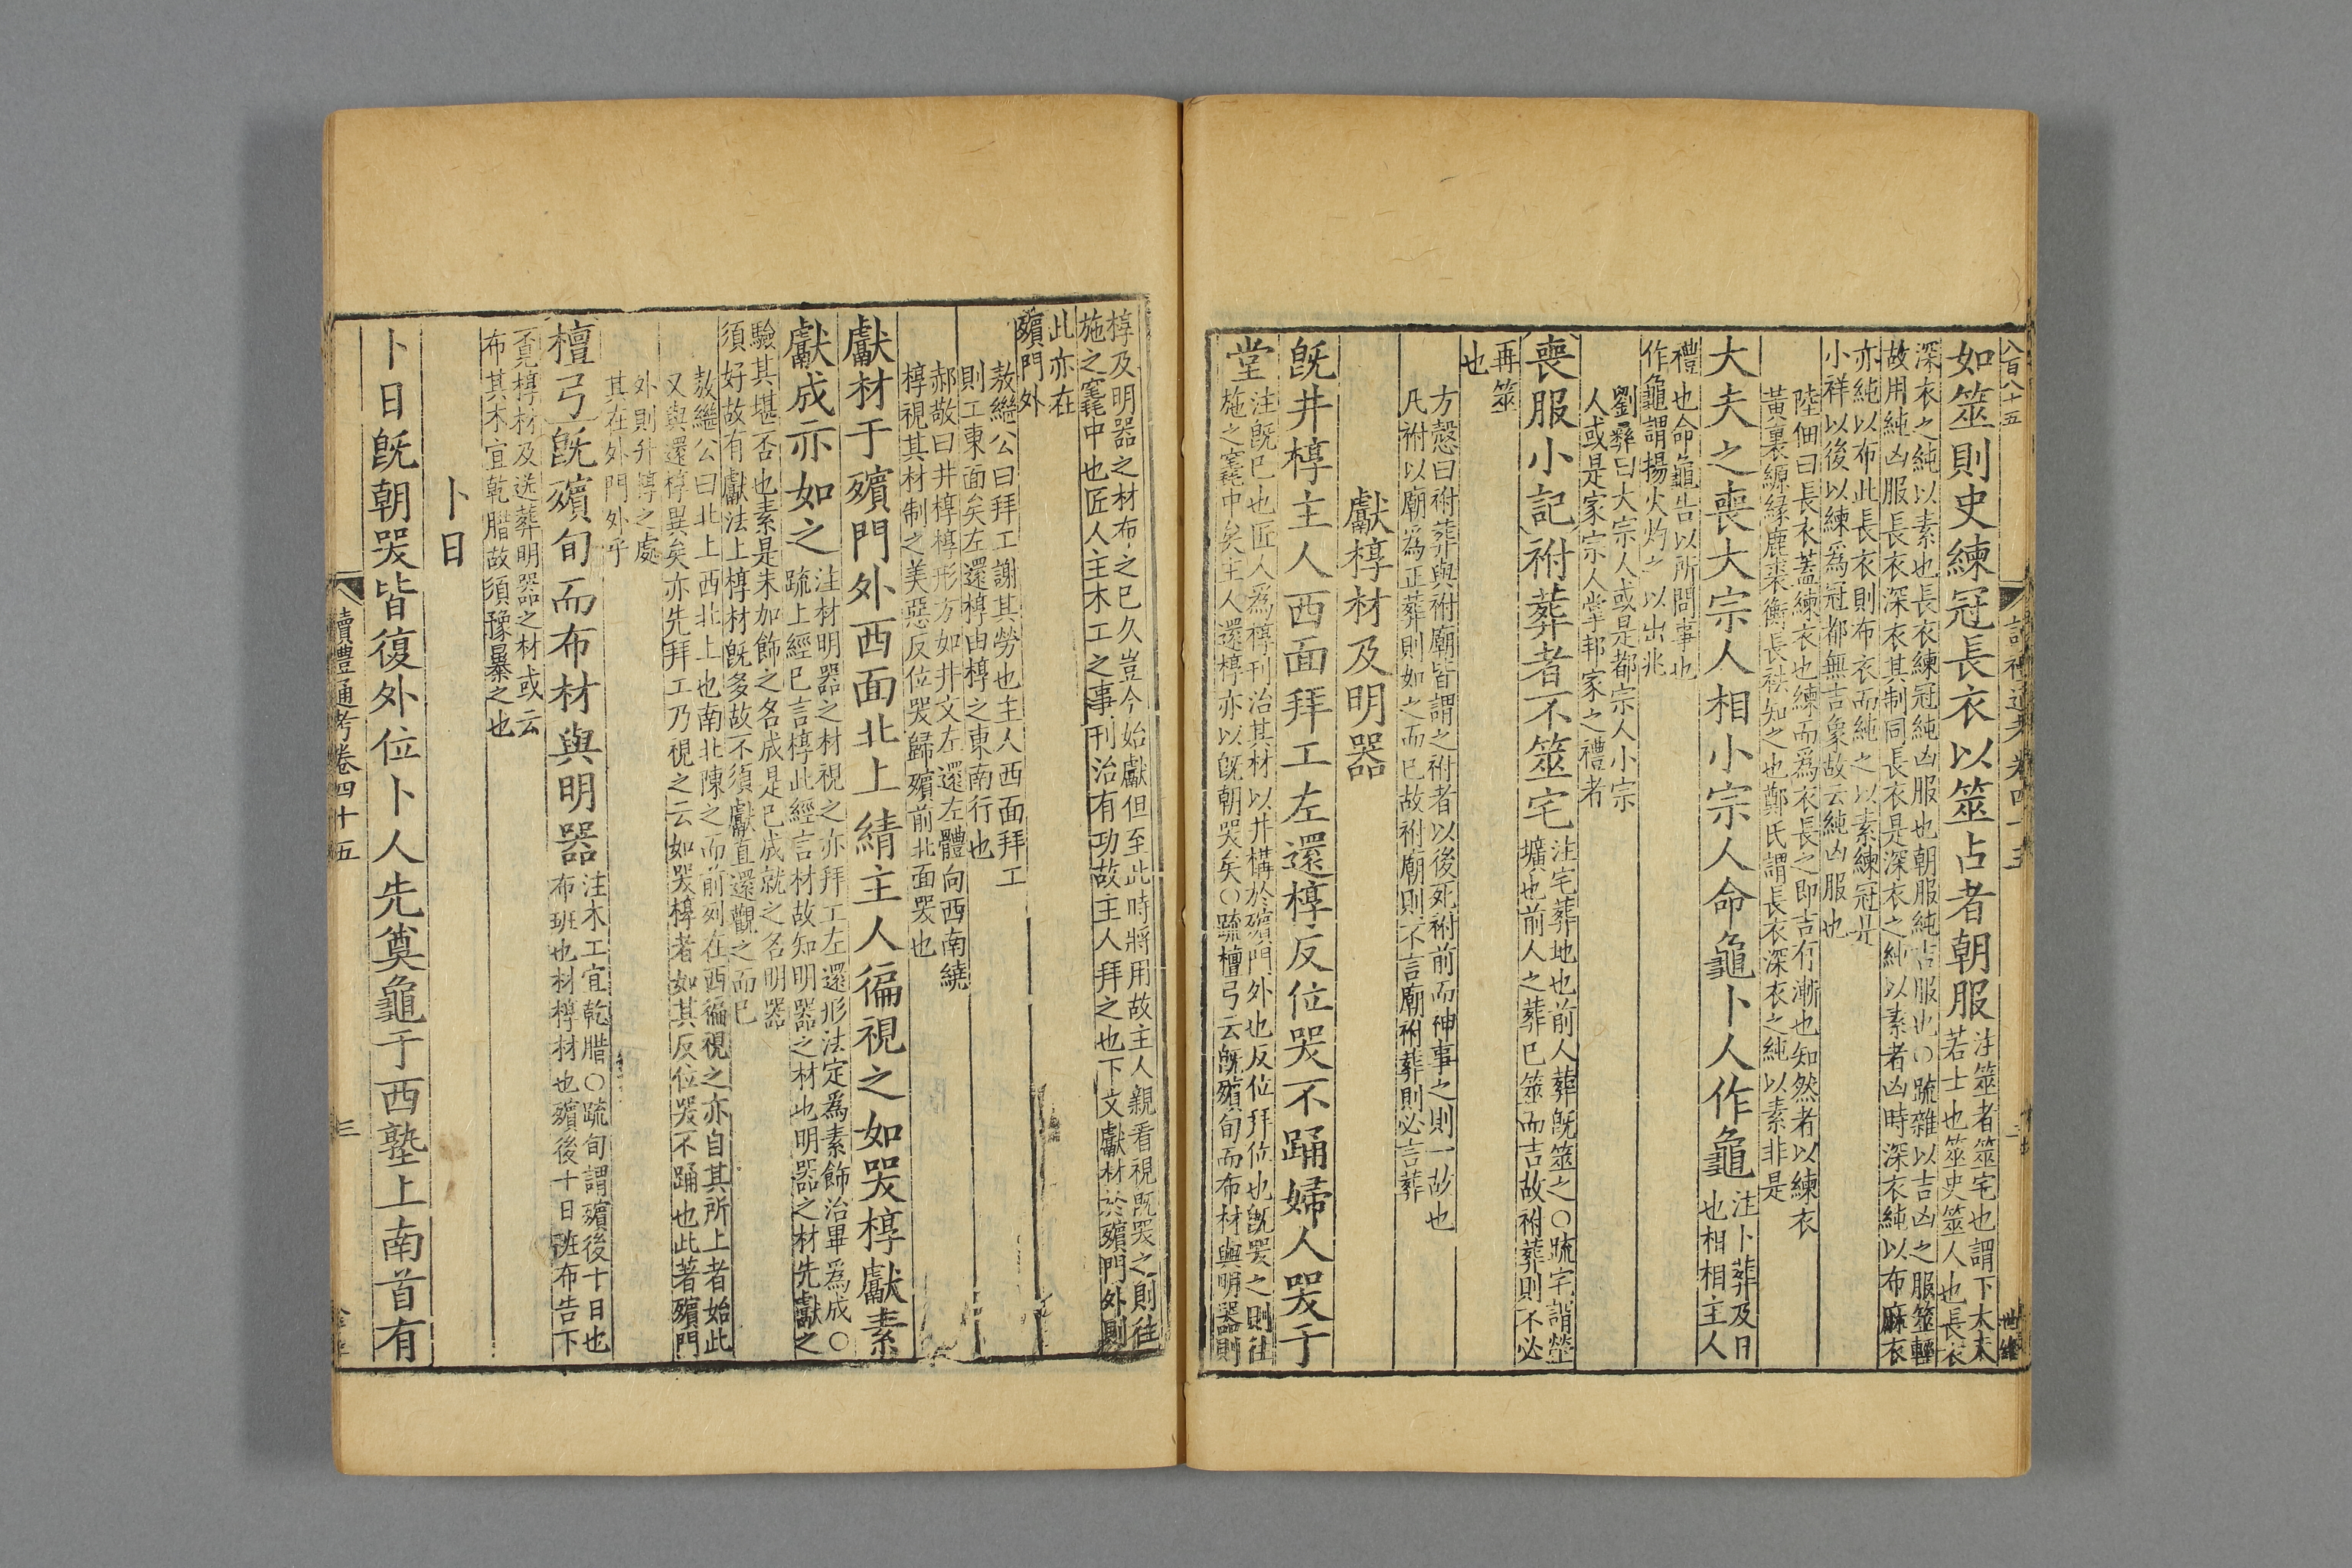 八百八十五
如筮則史練冠長衣以筮占者朝服
注筮者筮宅也謂下大夫
若士也筮史筮人也長衣
深衣之純以素也長衣練冠純凶服也朝服純吉服也○疏雜以吉凶之服筮轉
故用純凶服長衣深衣其制同長衣是深衣之純以素者凶時深衣純以布麻衣
亦純以布此長衣則布衣而純之以素練冠是
小祥以後以練爲冠都無吉象故云純凶服也
陸佃曰長衣蓋練衣也練而爲衣長之即吉有漸也知然者以練衣
黃裏縓緣鹿裘衡長袪知之也鄭氏謂長衣深衣之純以素非是
大夫之喪大宗人相小宗人命龜卜人作龜
注卜葬及日
也相相主人
禮也命龜告以所問事也
作龜謂揚火灼之以出兆
劉彝曰大宗人或是都宗人小宗
人或是家宗人掌邦家之禮者
喪服小記祔葬者不筮宅
注宅葬地也前人葬旣筮之○疏宅謂塋
壙也前人之葬已筮而吉故祔葬則不必
再筮
也
方愨曰祔葬與祔廟皆謂之祔者以後死祔前而神事之則一故也
凡祔以廟爲正葬則如之而已故祔廟則不言廟祔葬則必言葬
獻椁材及明器
旣井椁主人西面拜工左還椁反位哭不踊婦人哭于
堂
注旣已也匠人爲椁刊治其材以井構於殯門外也反位拜位也旣哭之則往
施之竁中矣主人還椁亦以旣朝哭矣○疏檀弓云旣殯旬而布材與明器則
椁及明器之材布之已久豈今始獻但至此時將用故主人親看視旣哭之則往
施之竁中也匠人主木工之事刊治有功故主人拜之也下文獻材於殯門外則
此亦在
殯門外
敖繼公曰拜工謝其勞也主人西面拜工
則工東面矣左還椁由椁之東南行也
郝敬曰井椁椁形方如井文左還左體向西南繞
椁視其材制之美惡反位哭歸殯前北面哭也
獻材于殯門外西面北上綪主人徧視之如哭椁獻素
獻成亦如之
注材明器之材視之亦拜工左還形法定爲素飾治畢爲成○
疏上經已言椁此經言材故知明器之材也明器之材先獻之
驗其堪否也素是未加飾之名成是已成就之名明器
須好故有獻法上椁材旣多故不須獻直還觀之而已
敖繼公曰北上西北上也南北陳之而前列在西徧視之亦自其所上者始此
又與還椁異矣亦先拜工乃視之云如哭椁者如其反位哭不踊也此著殯門
外則井椁之處
其在外門外乎
檀弓旣殯旬而布材與明器
注木工宜乾腊○疏旬謂殯後十日也
布班也材椁材也殯後十日班布告下
覓椁材及送葬明器之材或云
布其木宜乾腊故須豫暴之也
卜日
卜日旣朝哭皆復外位卜人先奠龜于西塾上南首有
讀禮通考卷四十五
三